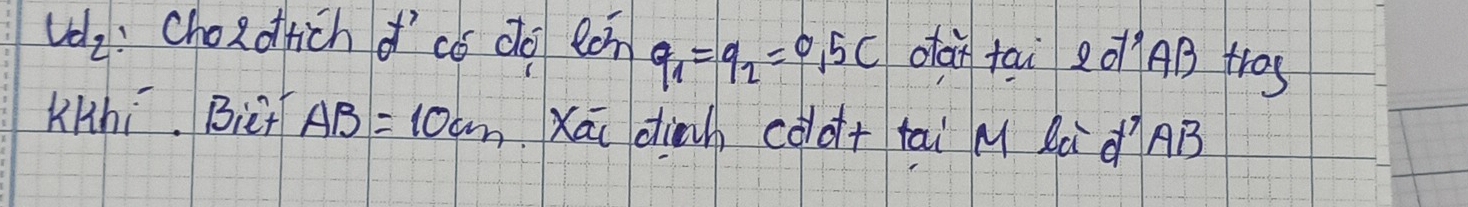 Vd₂: Cho 2 đtích đ' có độ lớn q₁ = q₂ = 0,5C đặt tại 2 đ' AB trog
kkhí. Biết AB = 10cm. Xác định cđđt tại M là đ' AB